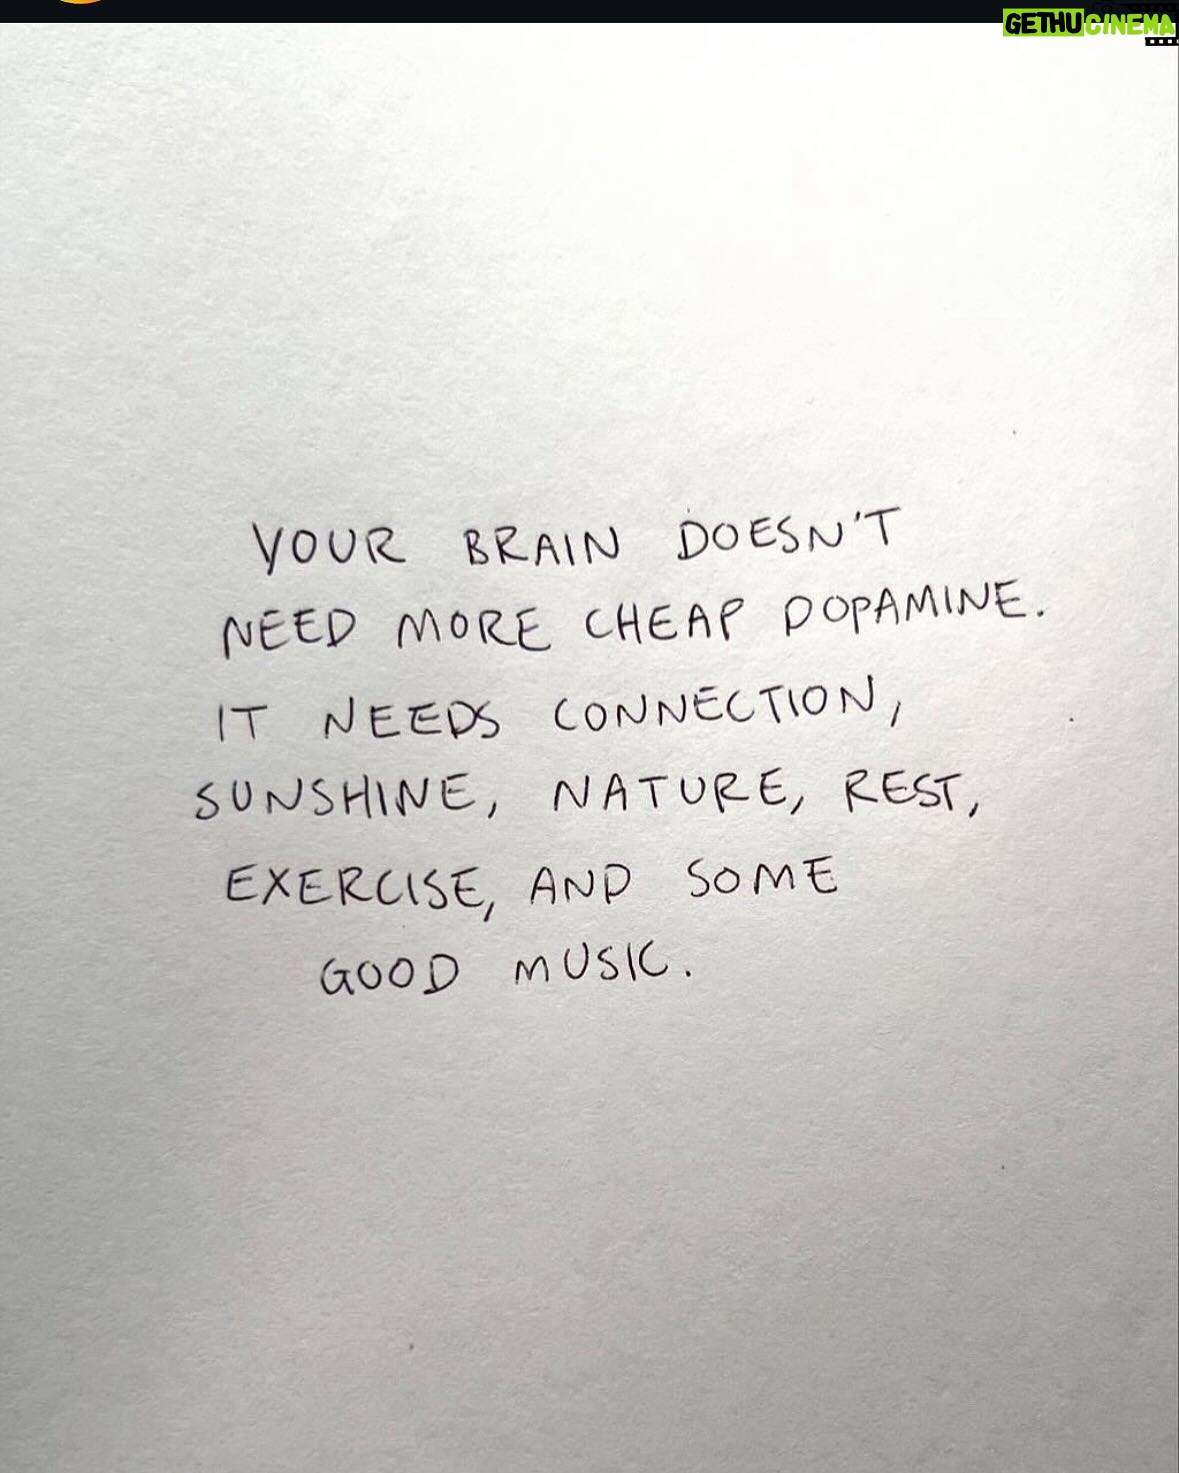 GETHUCINEMA
YOUR BRAIN DOESN'T
NEED MORE CHEAP DOPAMINE.
IT NEEDS CONNECTION,
SUNSHINE, NATURE, REST,
EXERCISE, AND SOME
GOOD MUSIC.